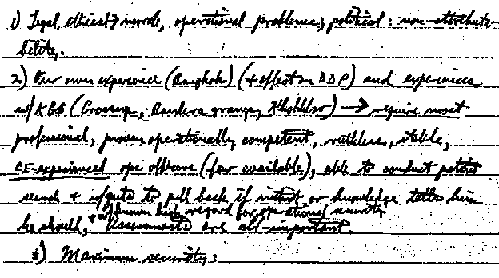 1) Legal, ethical & morale, operational problems; political: non-attributa-
bility.
2) Our own experience (Bangkok) (& effect on DDP) and experiences
w/ KGB (Crossup, Bandera group, Khokhlov) → require most
professional, proven operationally competent, ruthless, stable,
CE-experienced ops officers (few available), able to conduct patient
search & w/guts to pull back if instinct or knowledge tells him
he should, & w/known high regard for operational security.
Assessments are all-important.
3) Maximum security: